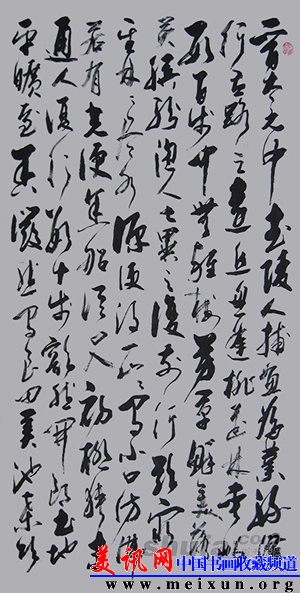 晉太元中武陵人捕魚為業緣溪
行忘路之遠近忽逢桃花林夾岸
數百步中無雜樹芳草鮮美落
英繽紛漁人甚異之復前行欲窮
其林林盡水源便得一山山有小口仿佛
若有光便舍船從口入初極狹才
通人復行數十步豁然開朗土地
平曠屋舍儼然有良田美池桑竹
美讯网 中国书画收藏频道
www.meixun.org